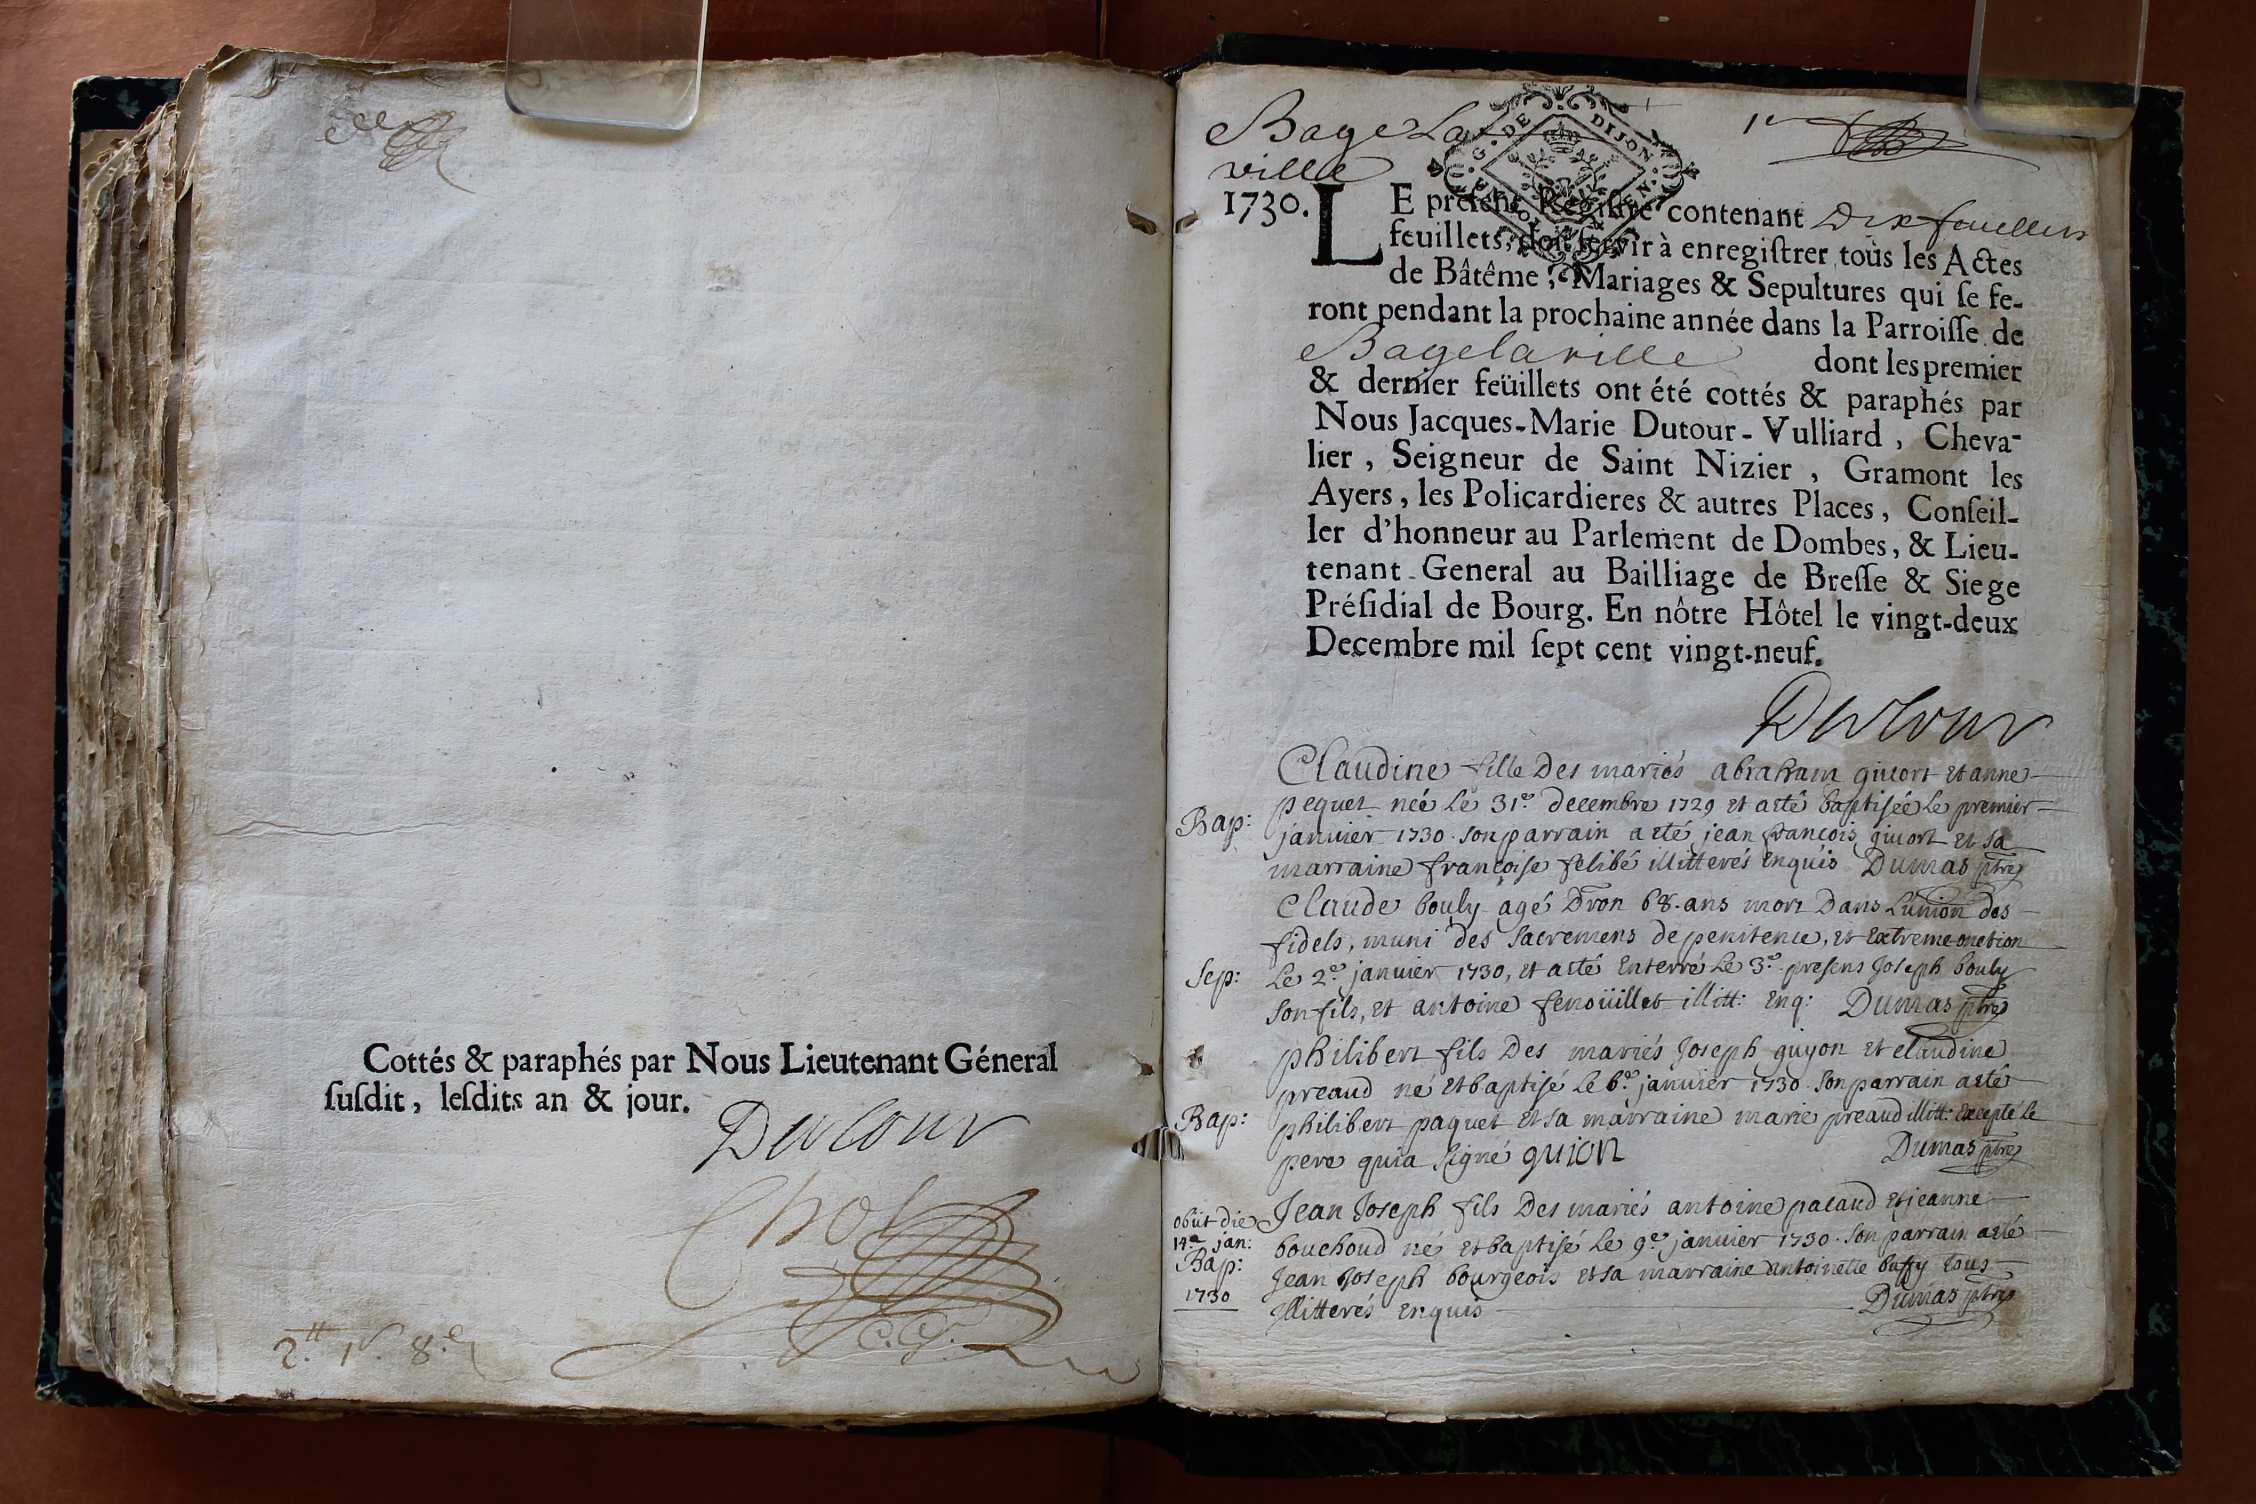 Cottés & paraphés par Nous Lieutenant Géneral
ſuſdit, leſdits an & jour.
Dutour
Chol
2.tt 1.s 8.d
Bage La
ville
1r
G. DE DIJON
1730.
LE preſent Regiſtre contenant Dix feuillets
feuillets, doit ſervir à enregiſtrer toùs les Actes
de Bâtême, Mariages & Sepultures qui ſe fe-
ront pendant la prochaine année dans la Parroiſſe de
Bagelaville dont les premier
& dernier feüillets ont été cottés & paraphés par
Nous Jacques-Marie Dutour-Vulliard, Cheva-
lier, Seigneur de Saint Nizier, Gramont les
Ayers, les Policardieres & autres Places, Conſeil-
ler d'honneur au Parlement de Dombes, & Lieu-
tenant General au Bailliage de Breſſe & Siege
Préſidial de Bourg. En nôtre Hôtel le vingt-deux
Decembre mil ſept cent vingt-neuf.
Dutour
Claudine fille Des mariés abraham givort et anne
pequet neé le 31.e decembre 1729 et aeté baptisée le premier
Bap:
janvier 1730. son parrain aeté jean françois givort et sa
marraine françoise felibé illitterés enquis Dumas ptre
Claude bouly agé D'von 68. ans mort Dans L'union des
fidels, muni des sacremens de penitence, et Extreme-onction
Sep:
Le 2.e janvier 1730, et aeté Enterré Le 3.e presens Joseph bouly
son fils, et antoine fenoüillet illitt: Enq: Dumas ptre
philibert fils Des mariés Joseph guyon et claudine
preaud né et baptisé Le 6.e janvier 1730. son parrain aeté
Bap:
philibert paquet et sa marraine marie preaud illitt: Excepté le
pere qui a signé guion Dumas ptre
Jean Joseph fils Des mariés antoine pacaud et jeanne
obiit die
14.a jan:
bouchoud né et baptisé Le 9.e janvier 1730. son parrain aeté
Bap:
Jean Joseph bourgeois et sa marraine antoinette buffy tous
1730
illitterés enquis Dumas ptre